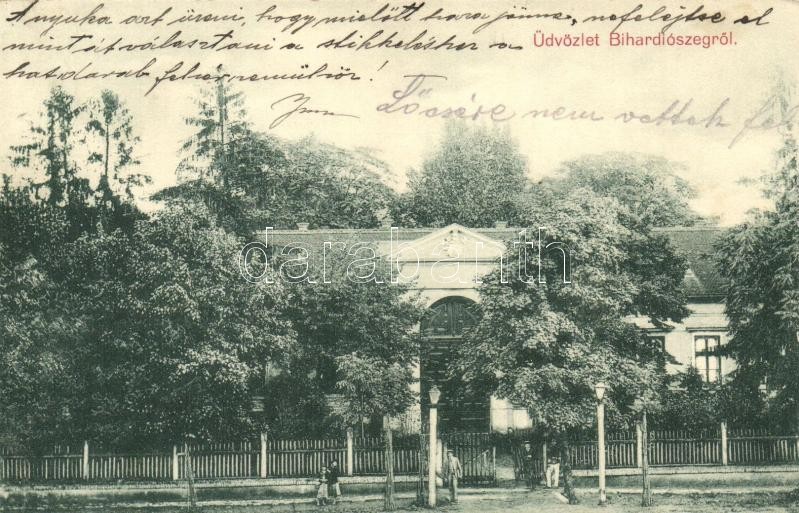 Anyuka azt üzeni, hogy mielőtt haza jönne, ne felejtse el
mintát választani a stikkeléshez a
hat darab fehérneműhöz!
Üdvözlet Bihardiószegről.
Lőcsére nem vettek fel
darabanth